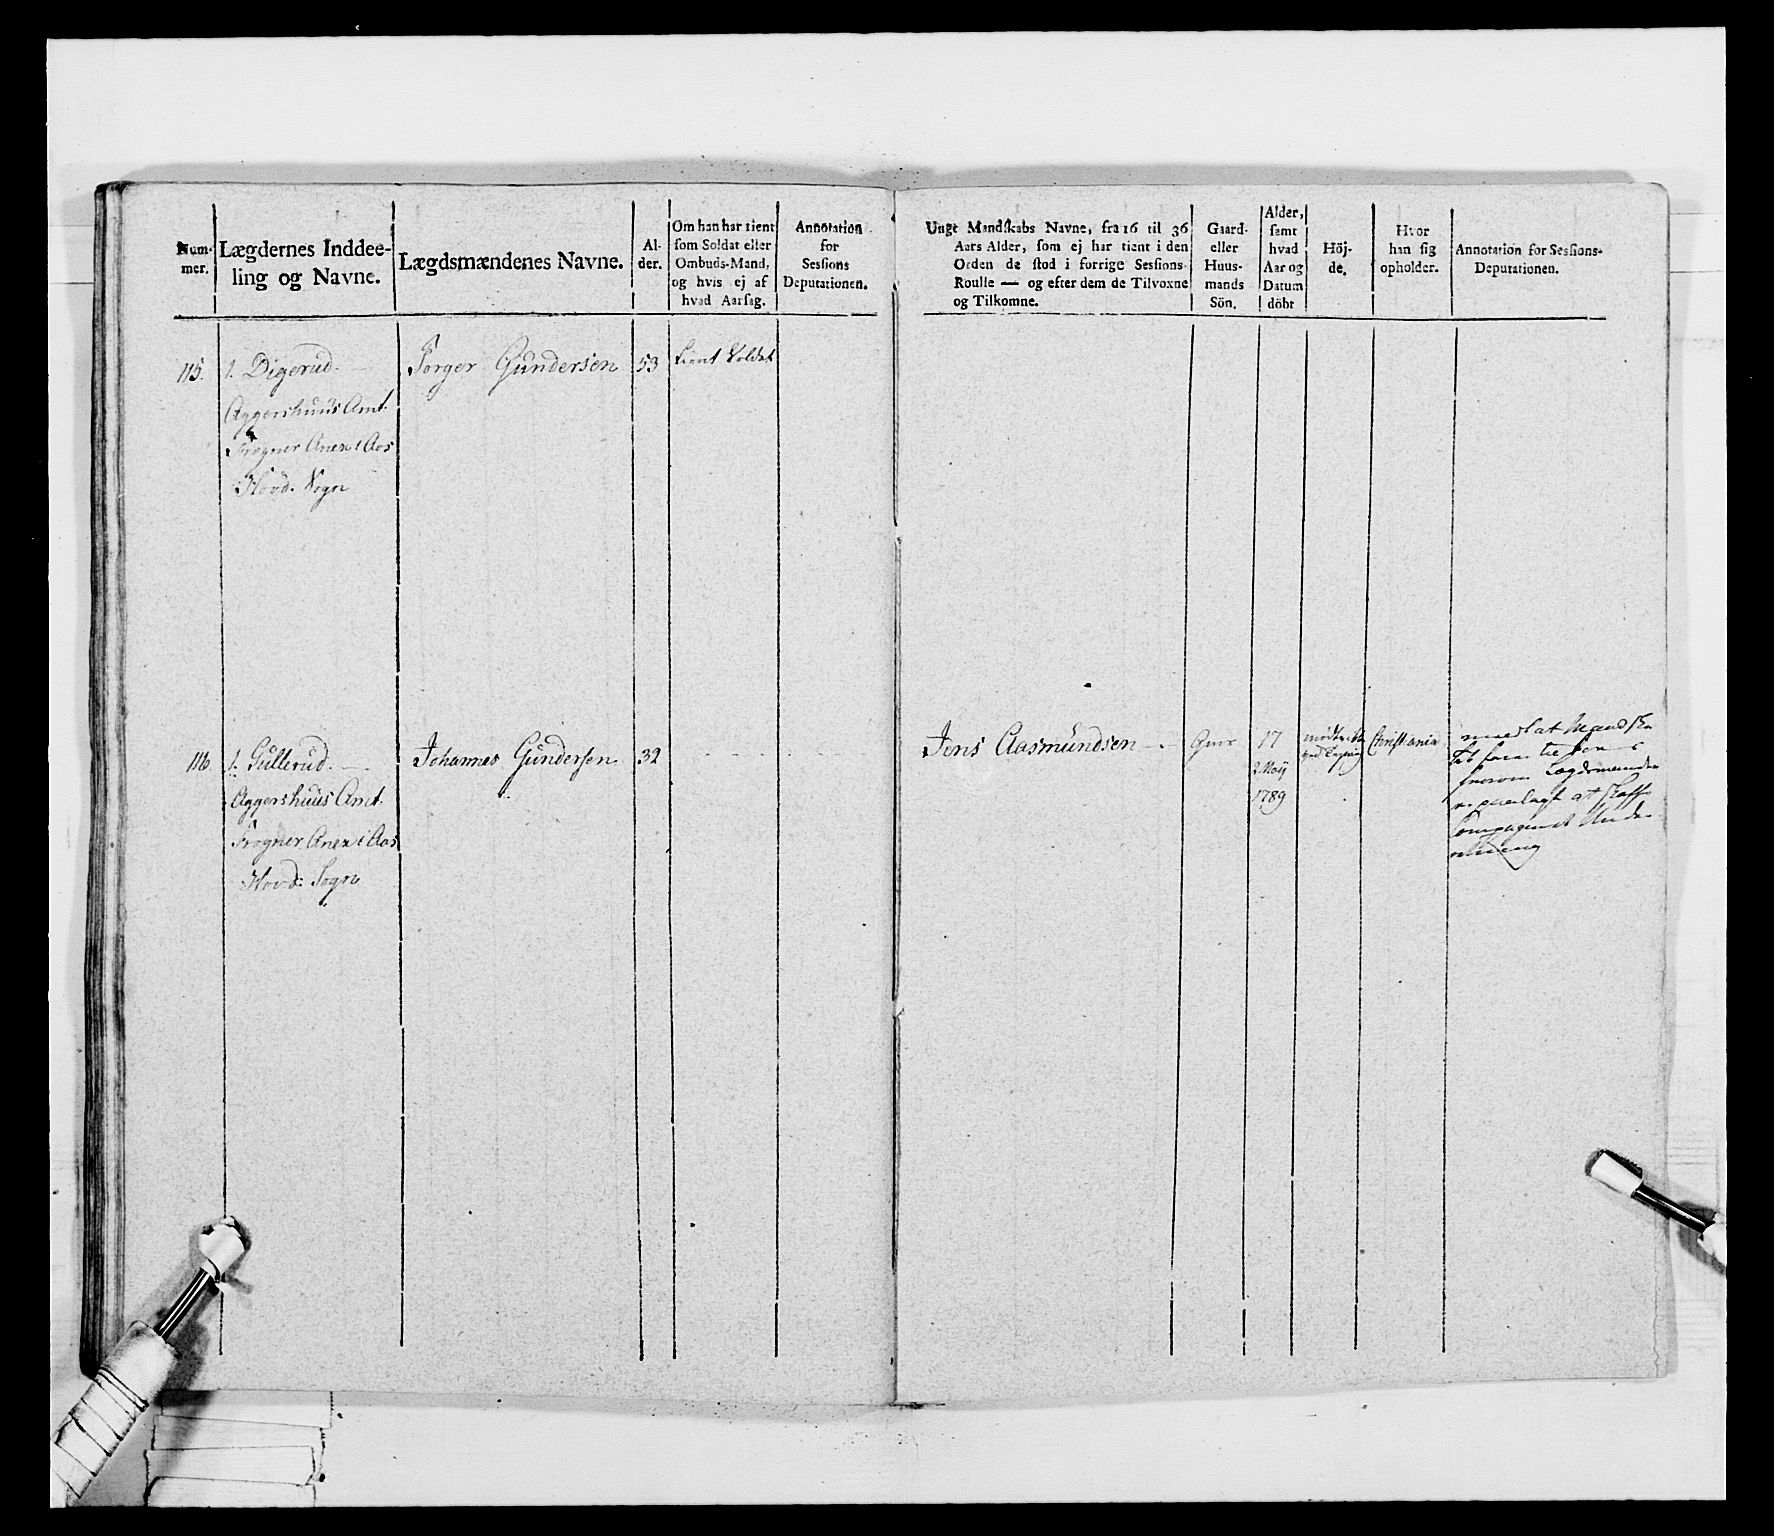 Num-
mer.
Lægdernes Inddee-
ling og Navne.
Lægdsmændenes Navne.
Al-
der.
Om han har tient
som Soldat eller
Ombuds-Mand,
og hvis ej af
hvad Aarsag.
Annotation
for
Sessions
Deputationen.
Ungt Mandskabs Navne, fra 16 til 36
Aars Alder, som ej har tient i den
Orden de stod i forrige Sessions-
Roulle — og efter dem de Tilvoxne
og Tilkomne.
Gaard-
eller
Huus-
mands
Sön.
Alder,
samt
hvad
Aar og
Datum
döbt
Höj-
de.
Hvor
han sig
opholder.
Annotation for Sessions-
Deputationen.
115. 1. Digerud. Torger Gundersen 53 tient Soldat
Aggershuus Amt.
Frogner Anex i Aas
Hovd. Sogn
116 1. Gullerud. Johannes Gundersen 32
Aggershuus Amt.
Frogner Anex i Aas
Hovd: Sogn
Jens Aasmundsen Gmr 17 Christiania
2 Maij
1789
Lægdsmanden
at skaffe
Compagniet Under-
retning